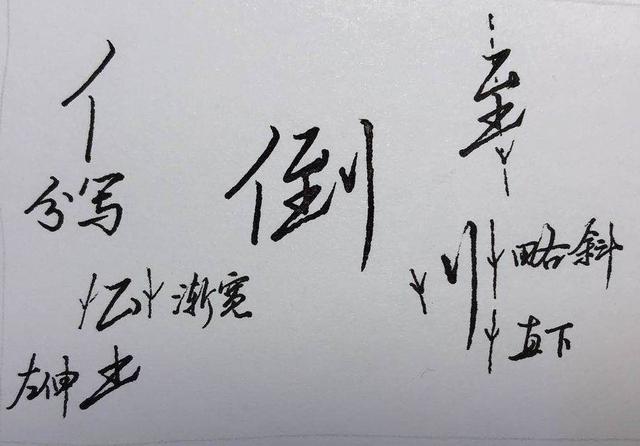 亻
分写
厶 渐宽
左伸 土
倒
至
刂 略斜
直下